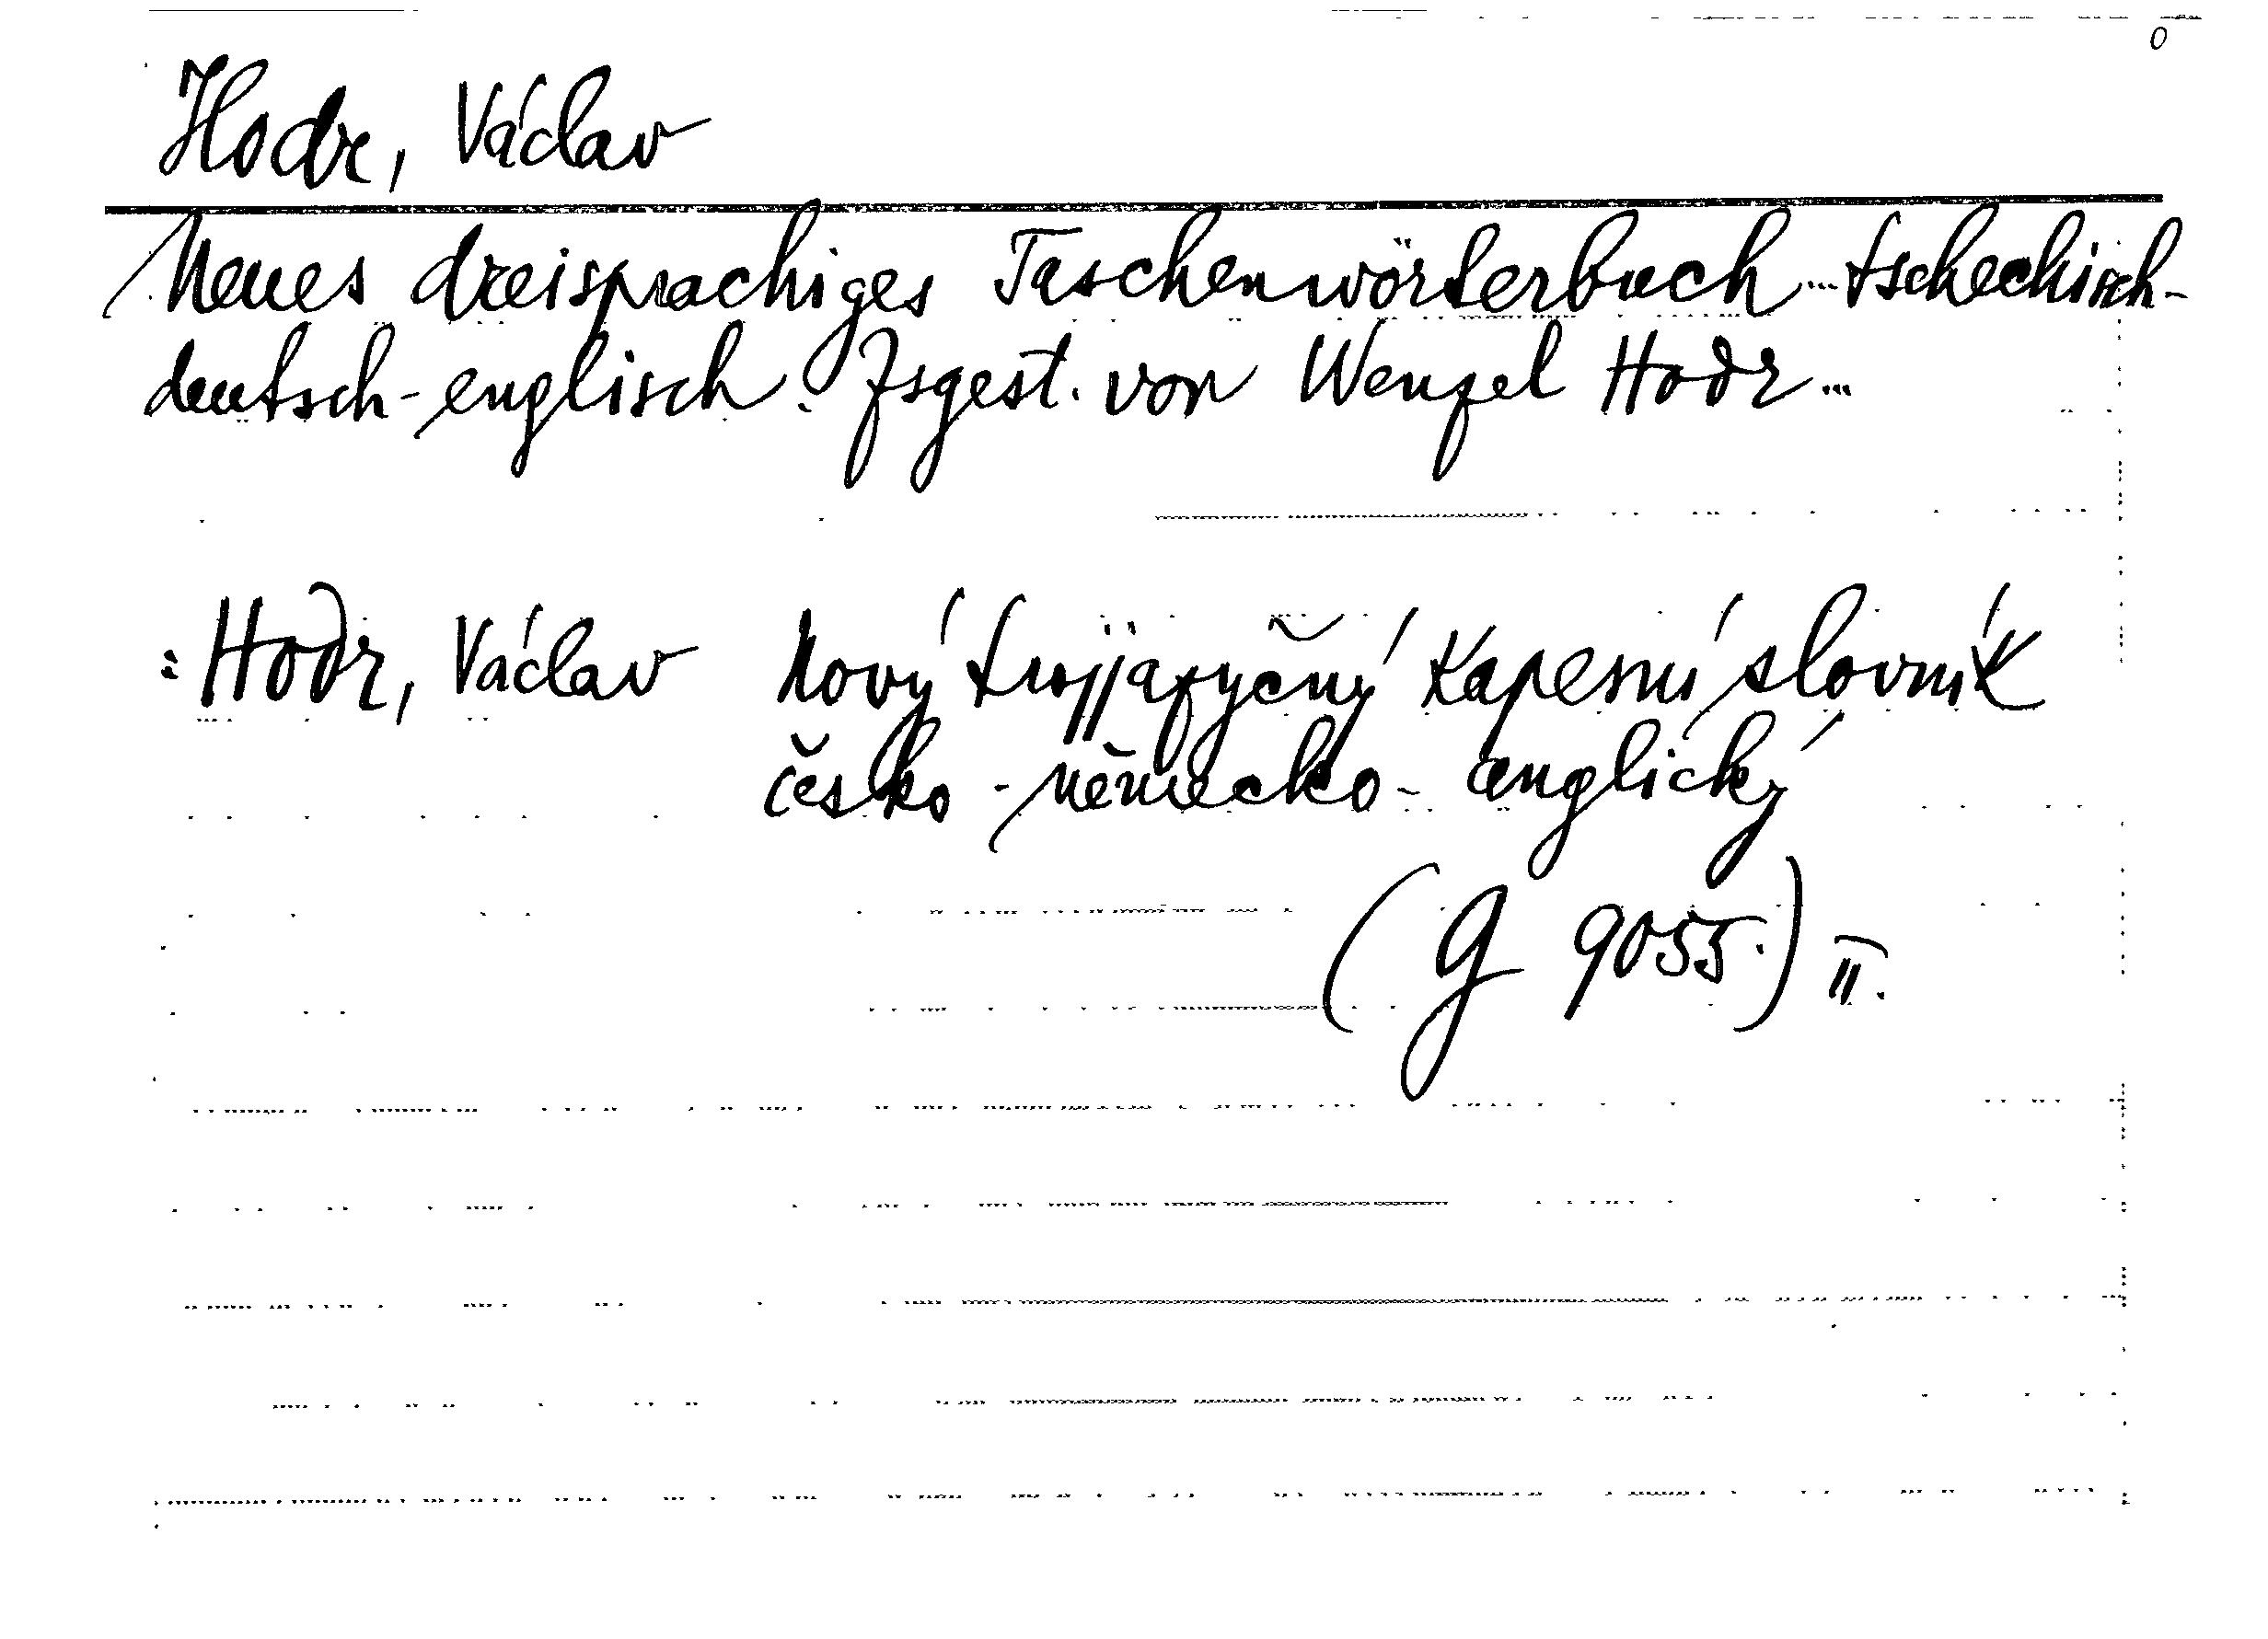 Hodr, Václav
Neues dreisprachiges Taschenwörterbuch ... tschechisch-
deutsch-englisch. Zsgest. von Wenzel Hodr ...
= Hodr, Václav Nový trojjazyčný kapesní slovník
česko-německo-anglický
(G 9055.) II.